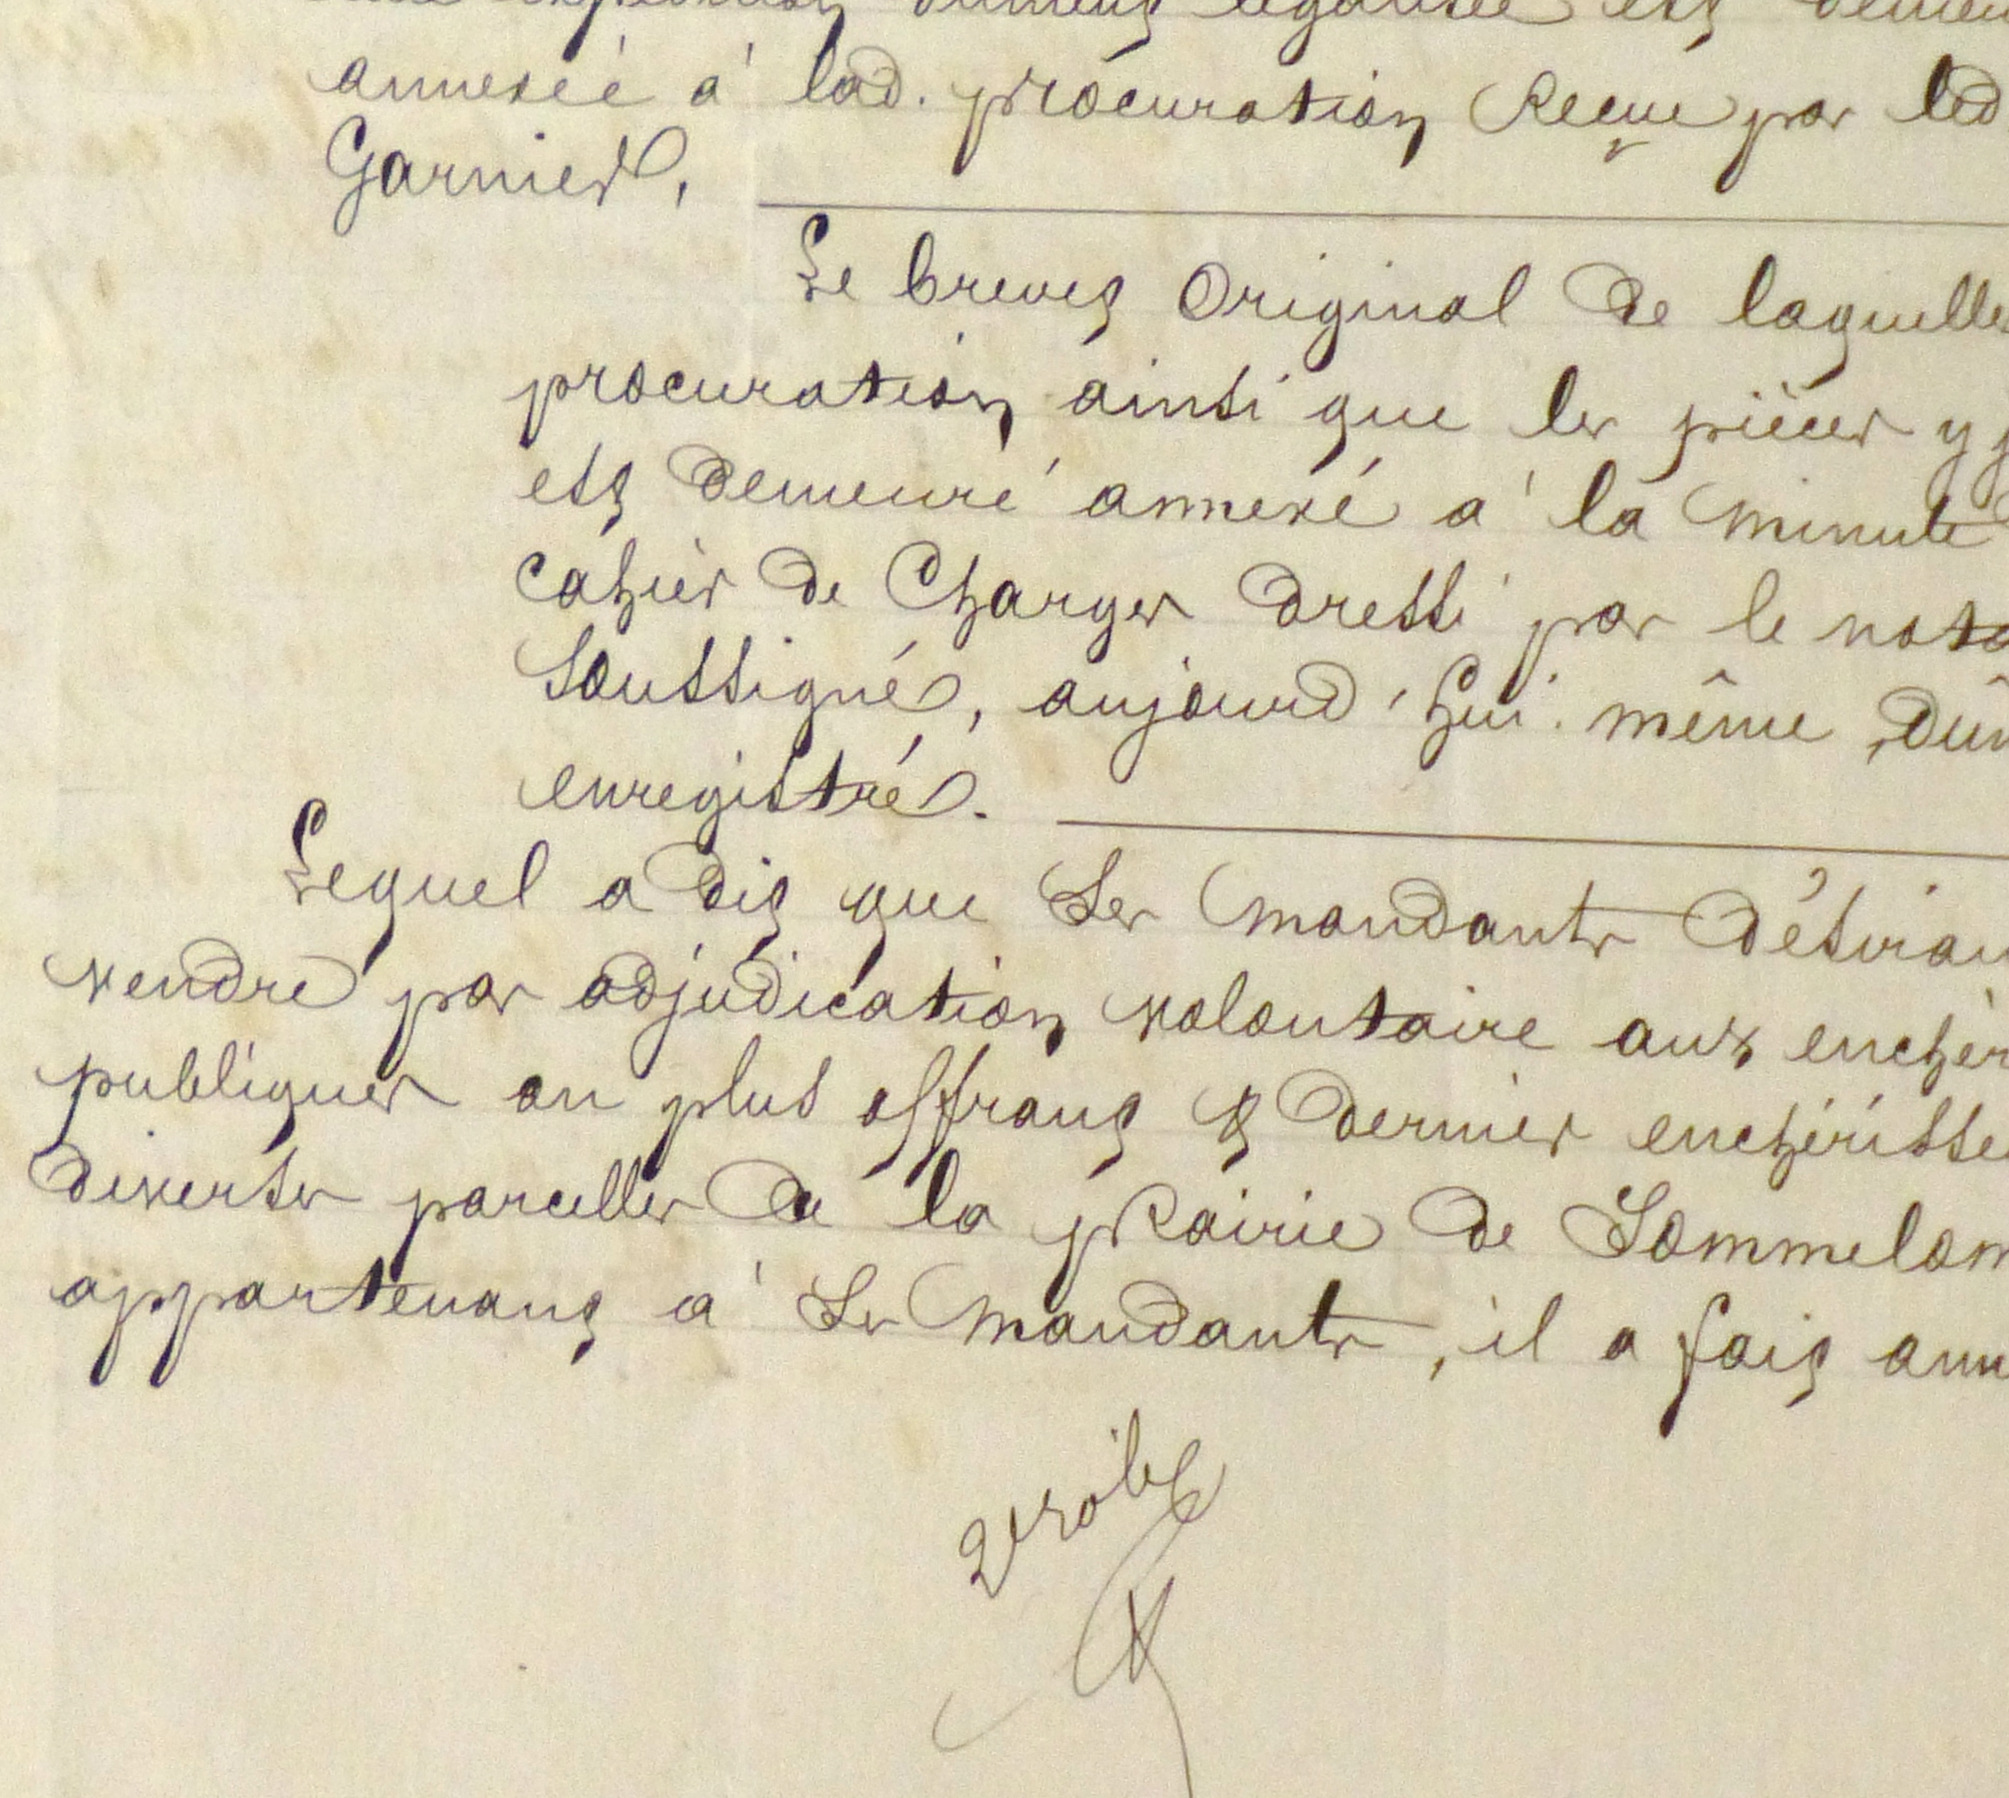 expédition dument légalisée est demeu
annexée à lad. procuration Reçue par led
Garnier,
Le brevet Original de laquelle
procuration ainsi que les pièces y j
est demeuré annexé à la minute d
cahier de Charges dressé par le nota
Soussigné, aujourd'hui même, dûm
enregistré.
Lequel a dit que Ses mandants désiran
vendre par adjudication volontaire aux enchèr
publiques au plus offrant & dernier enchérisse
diverses parcelles de la pRairie de Sommelon
appartenant à Ses mandants, il a fait ann